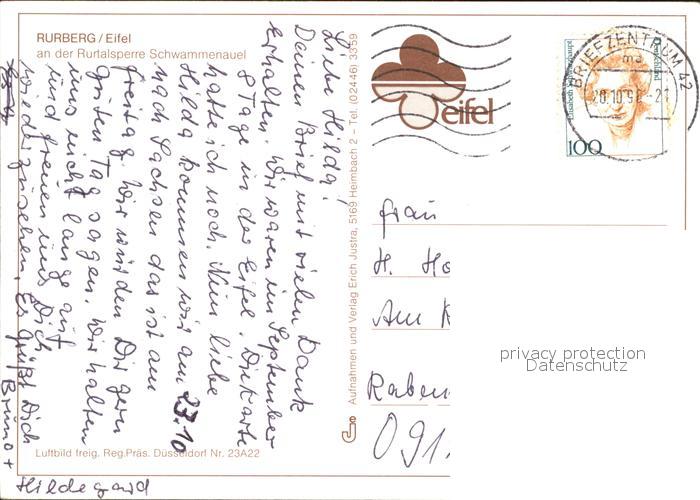 RURBERG / Eifel
an der Rurtalsperre Schwammenauel
Liebe Hilda!
Deinen Brief mit vielen Dank
erhalten. Wir waren im September
8 Tage in der Eifel. Die Karte
hatte ich noch. Nun liebe
Hilda kommen wir am 23.10
nach Sachsen das ist am
Freitag. Wir würden Dir gern
Guten Tag sagen. Wir halten
uns nicht lange auf
und freuen uns Dich
wiederzusehen. Es grüßt Dich
Bruno +
Hildegard
Luftbild freig. Reg.Präs. Düsseldorf Nr. 23A22
Aufnahmen und Verlag Erich Justra, 5169 Heimbach 2 – Tel. (02446) 3359
eifel
BRIEFZENTRUM 42
ma
20.10.98-21
100
Frau
H. Ho
Am K
Raben
091
privacy protection
Datenschutz